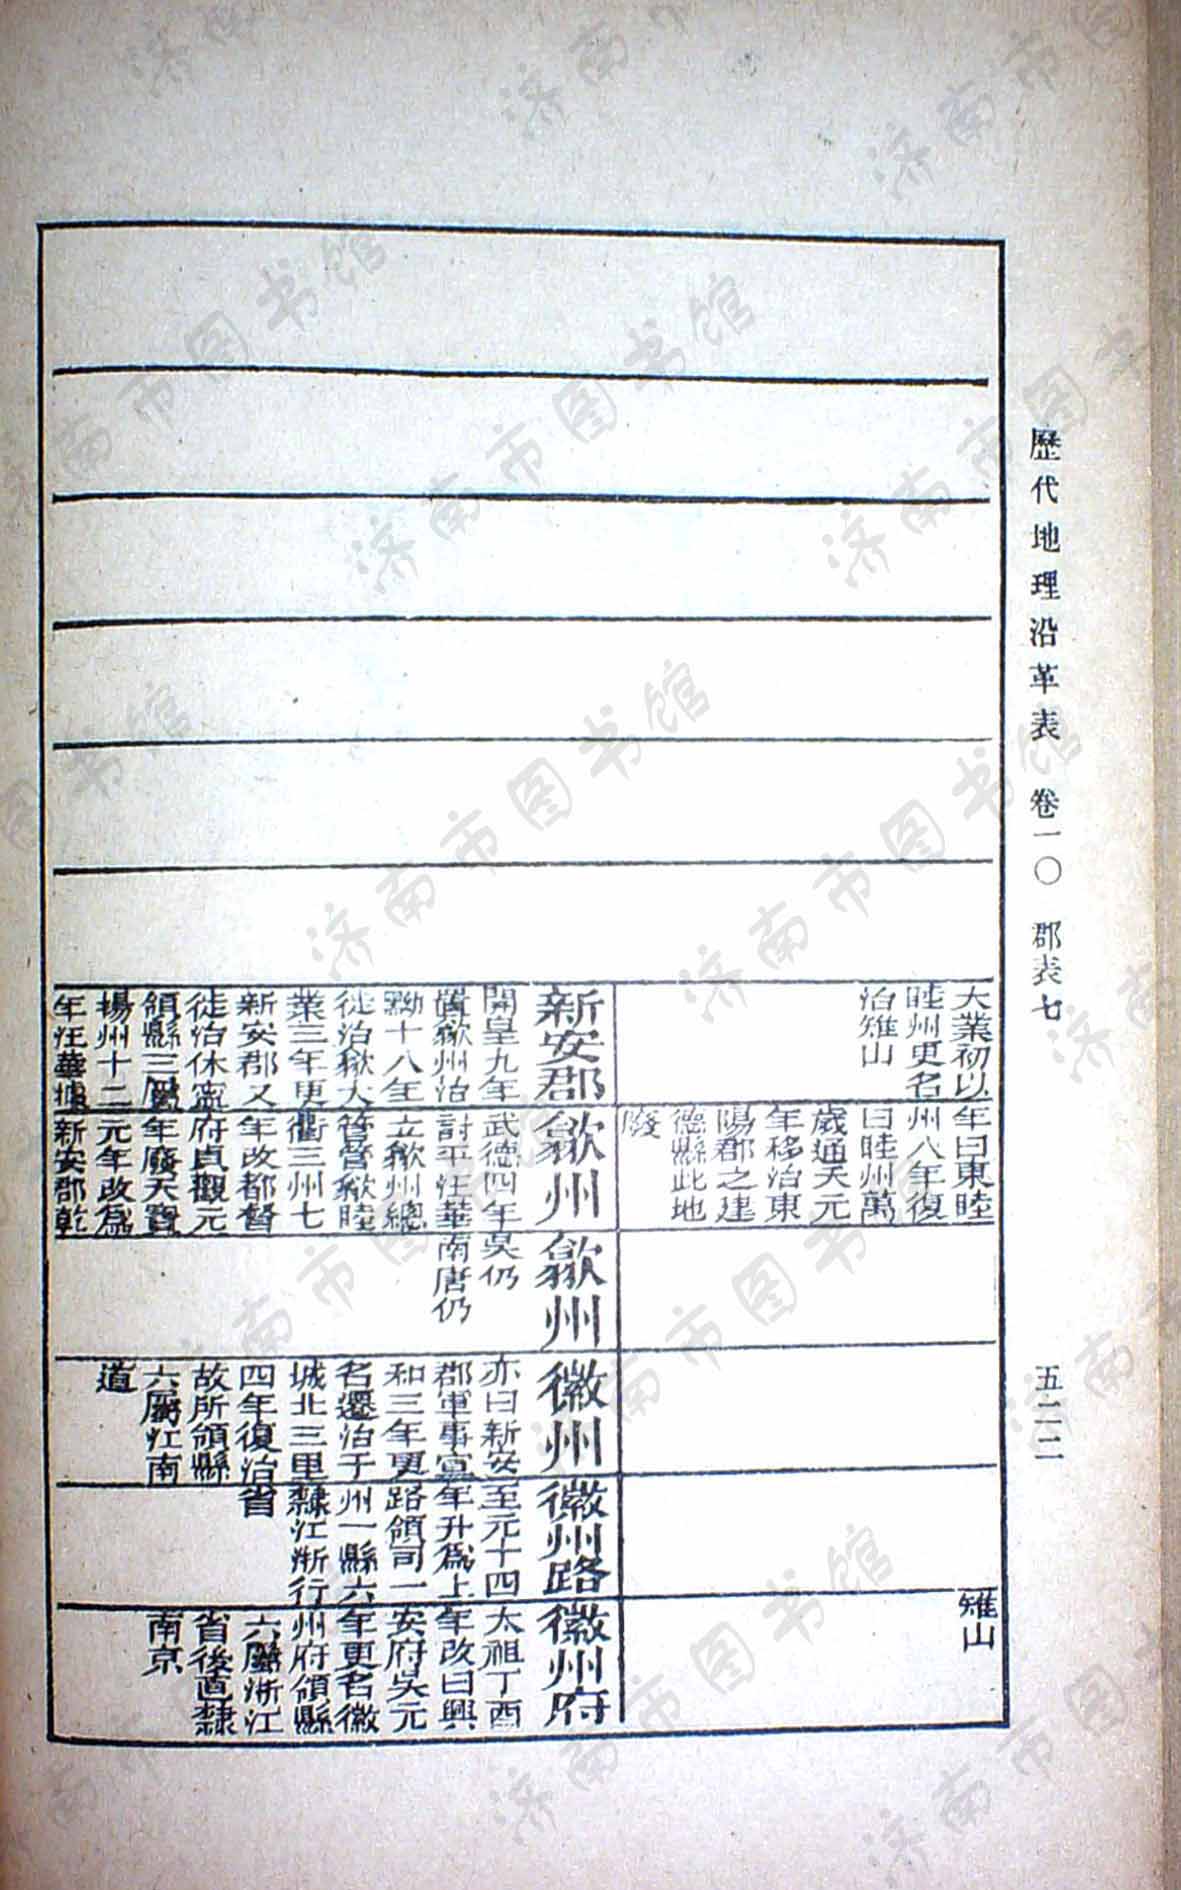 歷代地理沿革表　卷一〇　郡表七
五二二
大業初以
睦州更名
治雉山
年曰東睦
州八年復
曰睦州萬
歲通天元
年移治東
陽郡之建
德縣此地
廢
雉山
新安郡
開皇九年
置歙州治
黝十八年
徙治歙大
業三年更
新安郡又
徙治休寧
領縣三屬
揚州十二
年汪華據
歙州
武德四年
討平汪華
立歙州總
管督歙睦
衢三州七
年改都督
府貞觀元
年廢天寶
元年改爲
新安郡乾
歙州
吳仍
南唐仍
徽州
亦曰新安
郡軍事宣
和三年更
名遷治于
城北三里
四年復治
故所領縣
六屬江南
道
徽州路
至元十四
年升爲上
路領司一
州一縣六
隸江浙行
省
徽州府
太祖丁酉
年改曰興
安府吳元
年更名徽
州府領縣
六屬浙江
省後直隸
南京
济南市图书馆